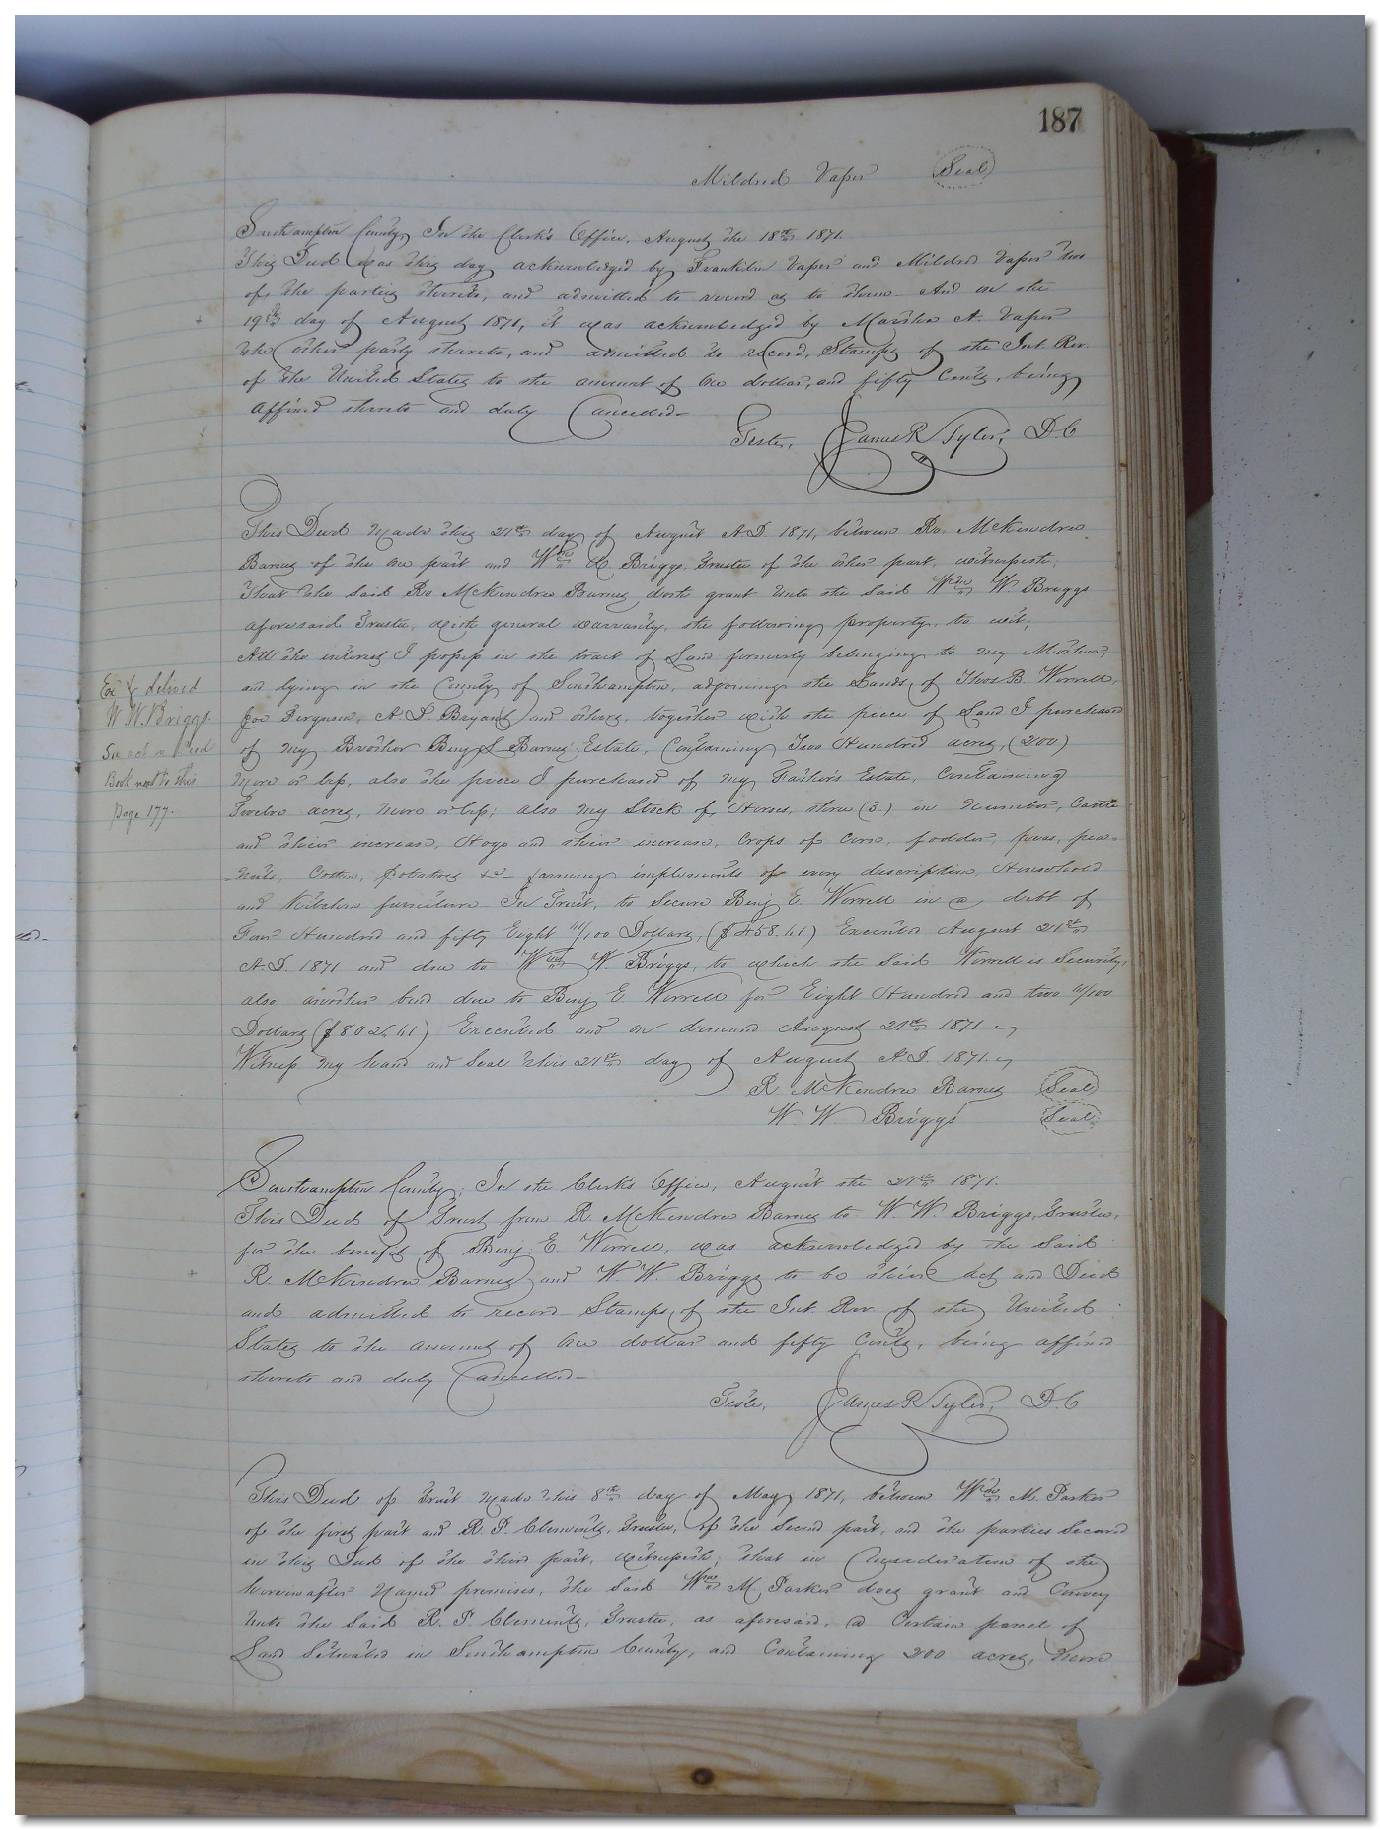 187
Mildred Vaper (Seal)
Southampton County, In the Clerk's Office, August the 18th 1871.
This Deed was this day acknowledged by Franklin Vaper and Mildred Vaper two
of the parties thereto, and admitted to record as to them - And on the
19th day of August 1871, it was acknowledged by Martha A. Vaper
the other party thereto, and admitted to record, Stamps of the Int. Rev.
of the United States to the amount of One dollar, and fifty Cents, being
affixed thereto and duly Cancelled-
Teste, James R Tyler, D.C
This Deed made this 21st day of August A.D. 1871, between Ro. McKendree
Barnes of the One part and Wm W Briggs, Trustee of the other part, witnesseth,
That the said Ro McKendree Barnes doth grant unto the said Wm W. Briggs
aforesaid Trustee, with general warranty, the following property, to wit,
All the interest I possess in the tract of Land formerly belonging to my Mother,
and lying in the County of Southampton, adjoining the Lands, of Thos B. Worrell,
Joe Ferguson, A. P. Bryant and others, together with the piece of Land I purchased
of my Brother Benj S Barnes' Estate, Containing Two Hundred acres, (200)
more or less, also the piece I purchased of my Father's Estate, Containing
Twelve acres, more or less; also my Stock of Horses, three (3.) in number, Cattle
and their increase, Hogs and their increase, Crops of Corn, fodder, peas, pea-
-nuts, Cotton, potatoes &c farming implements of every description, Household
and Kitchen furniture In Trust, to Secure Benj E. Worrell in a debt of
Four Hundred and fifty Eight 41/100 Dollars, ($458.41) Executed August 21st
A.D. 1871 and due to Wm W. Briggs, to which the Said Worrell is Security,
also another bond due to Benj E. Worrell for Eight Hundred and two 41/100
Dollars ($802.41) Executed and on demand August 21st 1871.
Witness my hand and Seal this 21st day of August A.D. 1871.
R McKendree Barnes (Seal)
W. W. Briggs (Seal)
Exd & delivd
W. W. Briggs
See act in Deed
Book next to this
page 177.
Southampton County; In the Clerks Office, August the 21st 1871.
This Deed of Trust from R. McKendree Barnes to W. W. Briggs, Trustee,
for the benefit of Benj. E. Worrell, was acknowledged by the Said
R. McKendree Barnes and W. W. Briggs to be their Act and Deed
and admitted to record Stamps, of the Int. Rev. of the United
States to the amount of One dollar and fifty Cents, being affixed
thereto and duly Cancelled-
Teste, James R Tyler, D.C
This Deed of Trust made this 8th day of May 1871, between Wm M. Parker
of the first part and R. P. Clements, Trustee, of the Second part, and the parties Secured
in this Deed of the third part, witnesseth; that in Consideration of the
hereinafter Named premises, the Said Wm M. Parker does grant and Convey
unto the Said R. P. Clements, Trustee, as aforesaid, a Certain parcel of
Land Situated in Southampton County, and Containing 200 acres, more